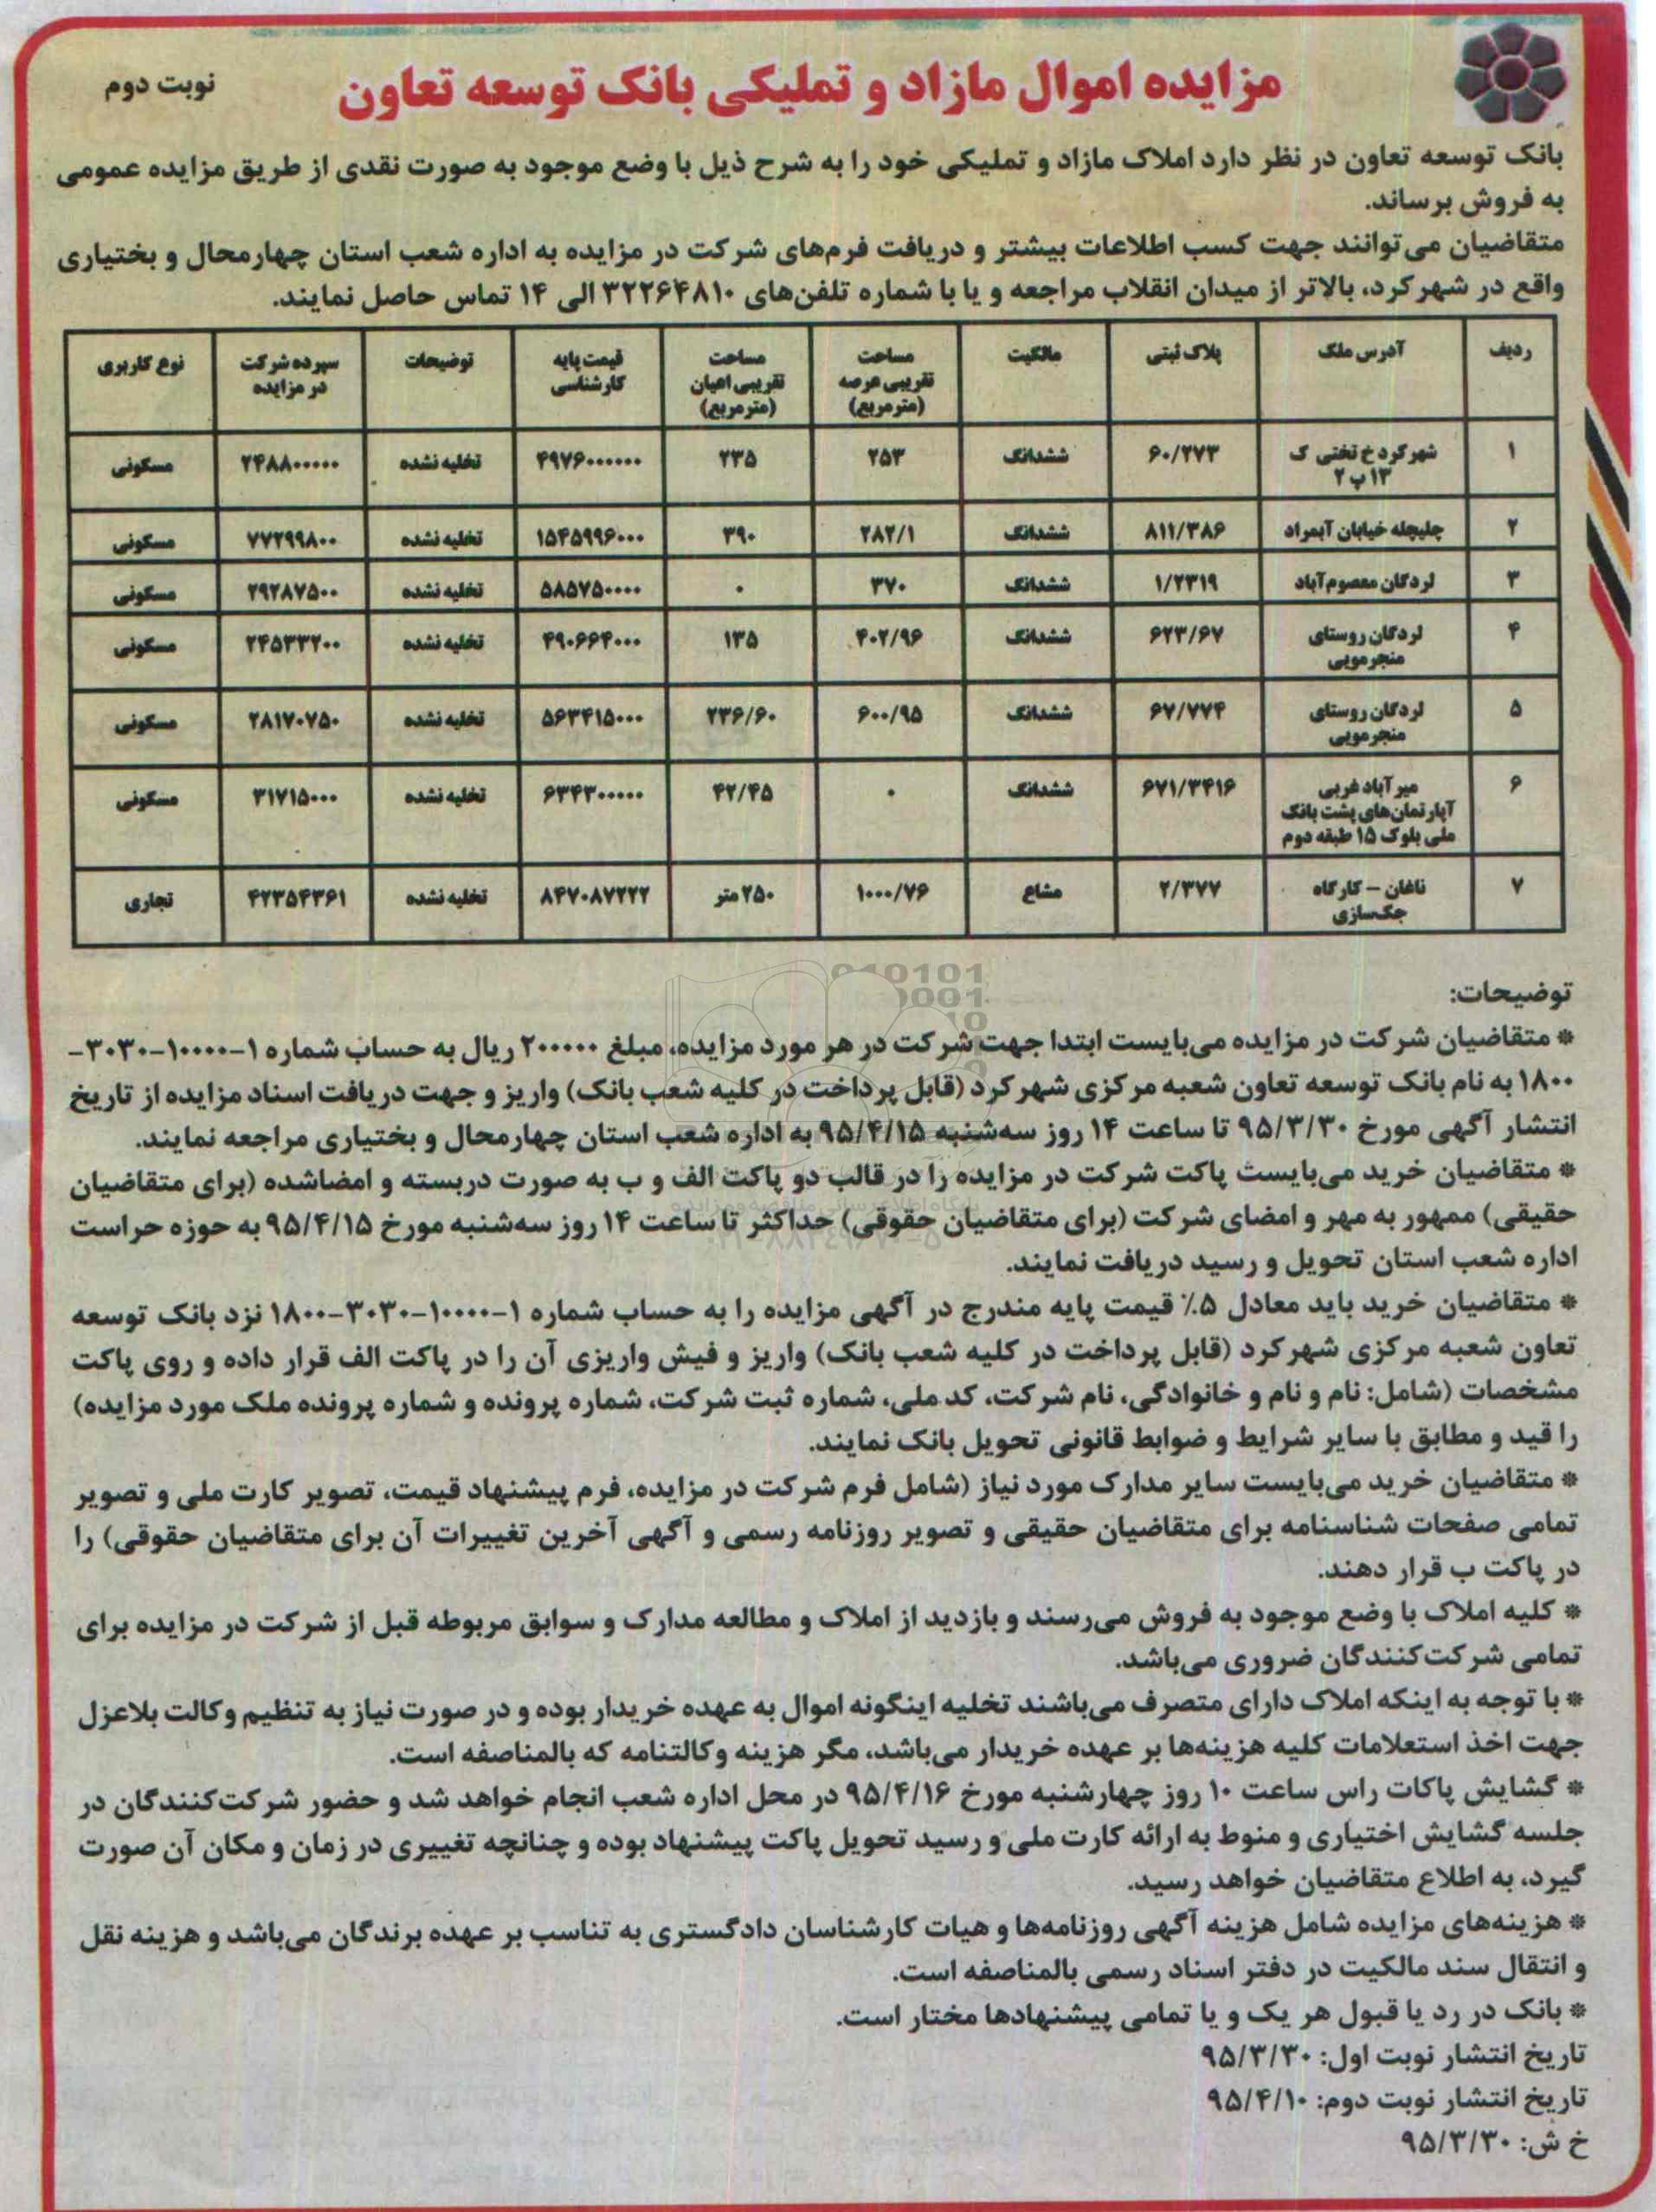 مزایده اموال مازاد و تملیکی بانک توسعه تعاون
نوبت دوم
بانک توسعه تعاون در نظر دارد املاک مازاد و تملیکی خود را به شرح ذیل با وضع موجود به صورت نقدی از طریق مزایده عمومی
به فروش برساند.
متقاضیان می‌توانند جهت کسب اطلاعات بیشتر و دریافت فرم‌های شرکت در مزایده به اداره شعب استان چهارمحال و بختیاری
واقع در شهرکرد، بالاتر از میدان انقلاب مراجعه و یا با شماره تلفن‌های ۳۲۲۶۴۸۱۰ الی ۱۴ تماس حاصل نمایند.
ردیف آدرس ملک پلاک ثبتی مالکیت مساحت تقریبی عرصه (مترمربع) مساحت تقریبی اعیان (مترمربع) قیمت پایه کارشناسی توضیحات سپرده شرکت در مزایده نوع کاربری
۱ شهرکرد خ تختی ک ۱۳ پ ۲ ۶۰/۲۷۳ ششدانگ ۲۵۳ ۲۳۵ ۴۹۷۶۰۰۰۰۰۰ تخلیه نشده ۲۴۸۸۰۰۰۰۰ مسکونی
۲ چلیچله خیابان آبمراد ۸۱۱/۳۸۶ ششدانگ ۲۸۲/۱ ۳۹۰ ۱۵۴۵۹۹۶۰۰۰ تخلیه نشده ۷۷۲۹۹۸۰۰ مسکونی
۳ لردگان معصوم‌آباد ۱/۲۳۱۹ ششدانگ ۳۷۰ ۰ ۵۸۵۷۵۰۰۰۰ تخلیه نشده ۲۹۲۸۷۵۰۰ مسکونی
۴ لردگان روستای منجرمویی ۶۲۳/۶۷ ششدانگ ۴۰۲/۹۶ ۱۳۵ ۴۹۰۶۶۴۰۰۰ تخلیه نشده ۲۴۵۳۳۲۰۰ مسکونی
۵ لردگان روستای منجرمویی ۶۷/۷۷۴ ششدانگ ۶۰۰/۹۵ ۲۳۶/۶۰ ۵۶۳۴۱۵۰۰۰ تخلیه نشده ۲۸۱۷۰۷۵۰ مسکونی
۶ میرآباد غربی آپارتمان‌های پشت بانک ملی بلوک ۱۵ طبقه دوم ۶۷۱/۳۴۱۶ ششدانگ ۰ ۴۲/۴۵ ۶۳۴۳۰۰۰۰۰ تخلیه نشده ۳۱۷۱۵۰۰۰ مسکونی
۷ ناغان – کارگاه جک‌سازی ۲/۳۷۷ مشاع ۱۰۰۰/۷۶ ۲۵۰ متر ۸۴۷۰۸۷۲۲۲ تخلیه نشده ۴۲۳۵۴۳۶۱ تجاری
توضیحات:
* متقاضیان شرکت در مزایده می‌بایست ابتدا جهت شرکت در هر مورد مزایده، مبلغ ۲۰۰۰۰۰ ریال به حساب شماره ۱-۱۰۰۰۰-۳۰۳۰-
۱۸۰۰ به نام بانک توسعه تعاون شعبه مرکزی شهرکرد (قابل پرداخت در کلیه شعب بانک) واریز و جهت دریافت اسناد مزایده از تاریخ
انتشار آگهی مورخ ۹۵/۳/۳۰ تا ساعت ۱۴ روز سه‌شنبه ۹۵/۴/۱۵ به اداره شعب استان چهارمحال و بختیاری مراجعه نمایند.
* متقاضیان خرید می‌بایست پاکت شرکت در مزایده را در قالب دو پاکت الف و ب به صورت دربسته و امضاشده (برای متقاضیان
حقیقی) ممهور به مهر و امضای شرکت (برای متقاضیان حقوقی) حداکثر تا ساعت ۱۴ روز سه‌شنبه مورخ ۹۵/۴/۱۵ به حوزه حراست
اداره شعب استان تحویل و رسید دریافت نمایند.
* متقاضیان خرید باید معادل ۵٪ قیمت پایه مندرج در آگهی مزایده را به حساب شماره ۱-۱۰۰۰۰-۳۰۳۰-۱۸۰۰ نزد بانک توسعه
تعاون شعبه مرکزی شهرکرد (قابل پرداخت در کلیه شعب بانک) واریز و فیش واریزی آن را در پاکت الف قرار داده و روی پاکت
مشخصات (شامل: نام و نام و خانوادگی، نام شرکت، کد ملی، شماره ثبت شرکت، شماره پرونده و شماره پرونده ملک مورد مزایده)
را قید و مطابق با سایر شرایط و ضوابط قانونی تحویل بانک نمایند.
* متقاضیان خرید می‌بایست سایر مدارک مورد نیاز (شامل فرم شرکت در مزایده، فرم پیشنهاد قیمت، تصویر کارت ملی و تصویر
تمامی صفحات شناسنامه برای متقاضیان حقیقی و تصویر روزنامه رسمی و آگهی آخرین تغییرات آن برای متقاضیان حقوقی) را
در پاکت ب قرار دهند.
* کلیه املاک با وضع موجود به فروش می‌رسند و بازدید از املاک و مطالعه مدارک و سوابق مربوطه قبل از شرکت در مزایده برای
تمامی شرکت‌کنندگان ضروری می‌باشد.
* با توجه به اینکه املاک دارای متصرف می‌باشند تخلیه اینگونه اموال به عهده خریدار بوده و در صورت نیاز به تنظیم وکالت بلاعزل
جهت اخذ استعلامات کلیه هزینه‌ها بر عهده خریدار می‌باشد، مگر هزینه وکالتنامه که بالمناصفه است.
* گشایش پاکات راس ساعت ۱۰ روز چهارشنبه مورخ ۹۵/۴/۱۶ در محل اداره شعب انجام خواهد شد و حضور شرکت‌کنندگان در
جلسه گشایش اختیاری و منوط به ارائه کارت ملی و رسید تحویل پاکت پیشنهاد بوده و چنانچه تغییری در زمان و مکان آن صورت
گیرد، به اطلاع متقاضیان خواهد رسید.
* هزینه‌های مزایده شامل هزینه آگهی روزنامه‌ها و هیات کارشناسان دادگستری به تناسب بر عهده برندگان می‌باشد و هزینه نقل
و انتقال سند مالکیت در دفتر اسناد رسمی بالمناصفه است.
* بانک در رد یا قبول هر یک و یا تمامی پیشنهادها مختار است.
تاریخ انتشار نوبت اول: ۹۵/۳/۳۰
تاریخ انتشار نوبت دوم: ۹۵/۴/۱۰
خ ش: ۹۵/۳/۳۰